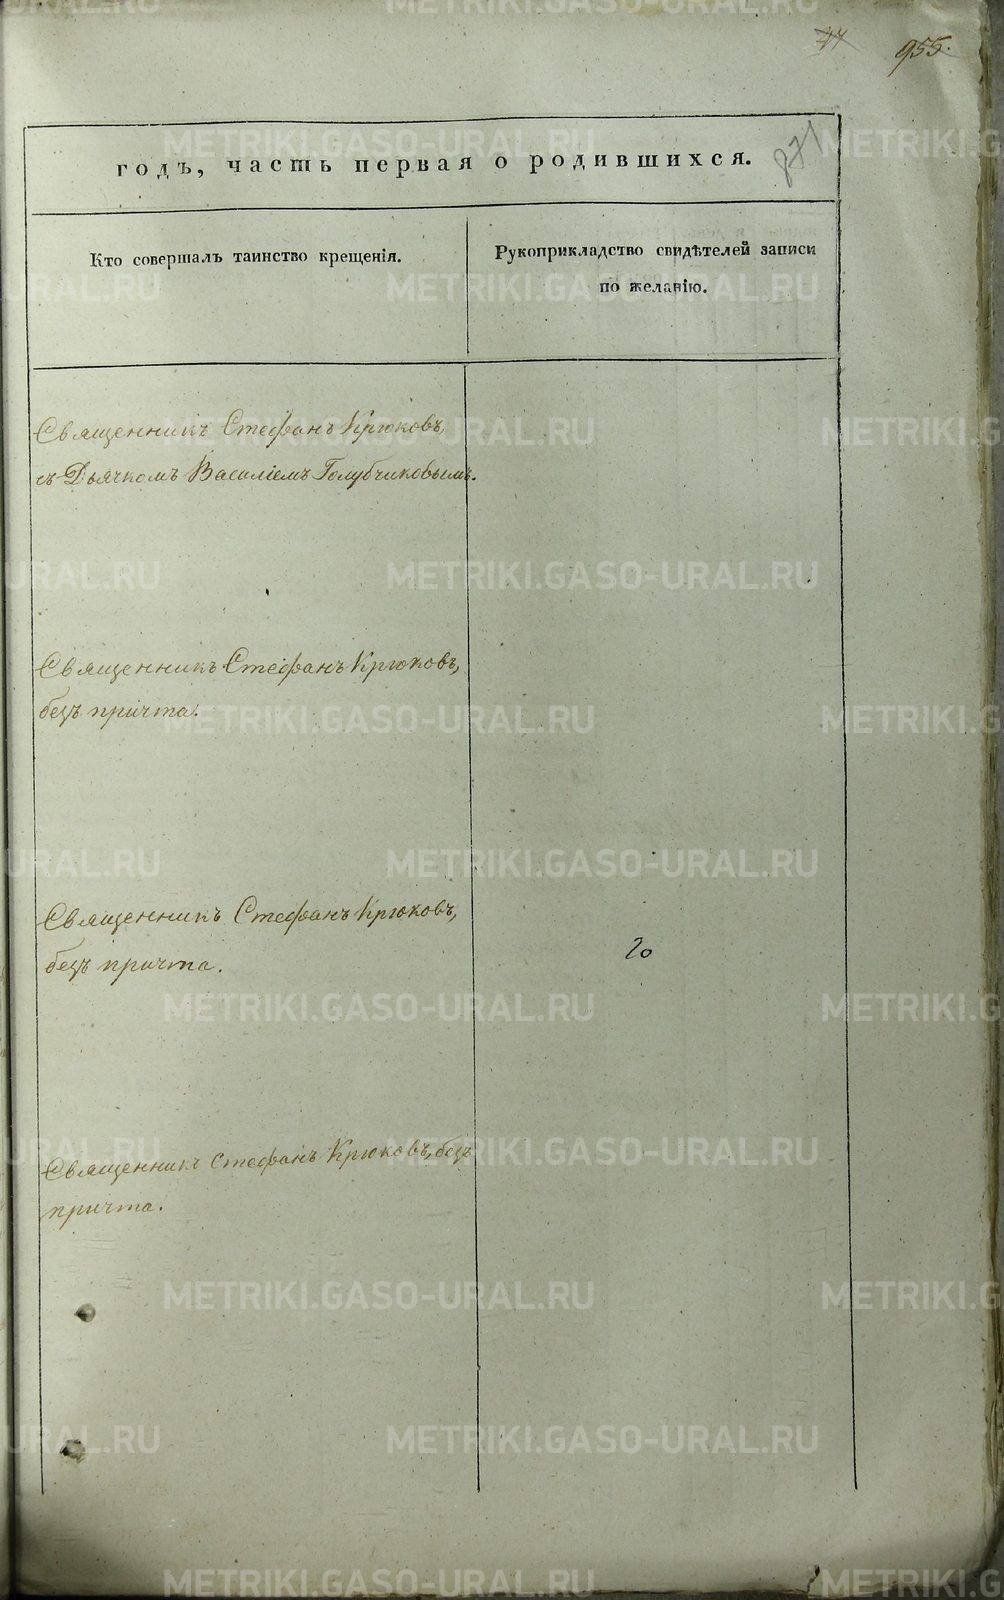 955.
годъ, часть первая о родившихся.
Кто совершалъ таинство крещенія.
Рукоприкладство свидѣтелей записи
по желанію.
Священникъ Стефанъ Крюковъ,
съ Дьячкомъ Василіемъ Голубчиковымъ.
Священникъ Стефанъ Крюковъ,
безъ причта.
Священникъ Стефанъ Крюковъ,
безъ причта.
Священникъ Стефанъ Крюковъ, безъ
причта.
METRIKI.GASO-URAL.RU